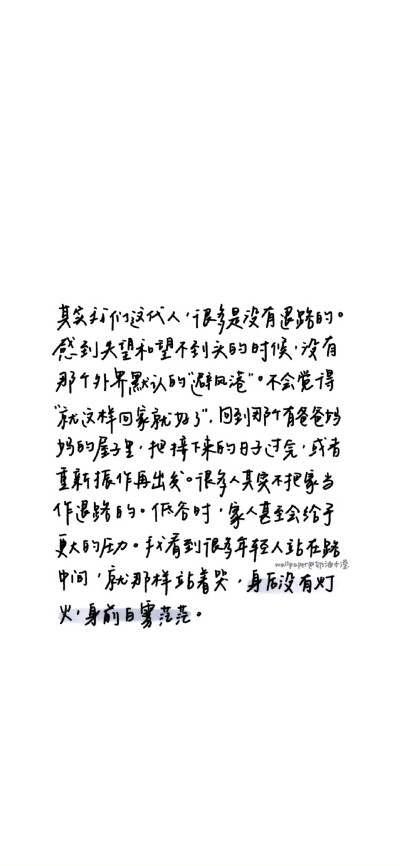 其实我们这代人，很多是没有退路的。
感到失望和望不到头的时候，没有
那个外界默认的"避风港"。不会觉得
"就这样回家就好了"，回到那个有爸爸妈
妈的屋子里，把接下来的日子过完，或者
重新振作再出发。很多人其实不把家当
作退路的。低谷时，家人甚至会给予
更大的压力。我看到很多年轻人站在路
中间，就那样站着哭，身后没有灯
火，身前白雾茫茫。
wallpaper@奶油小漫